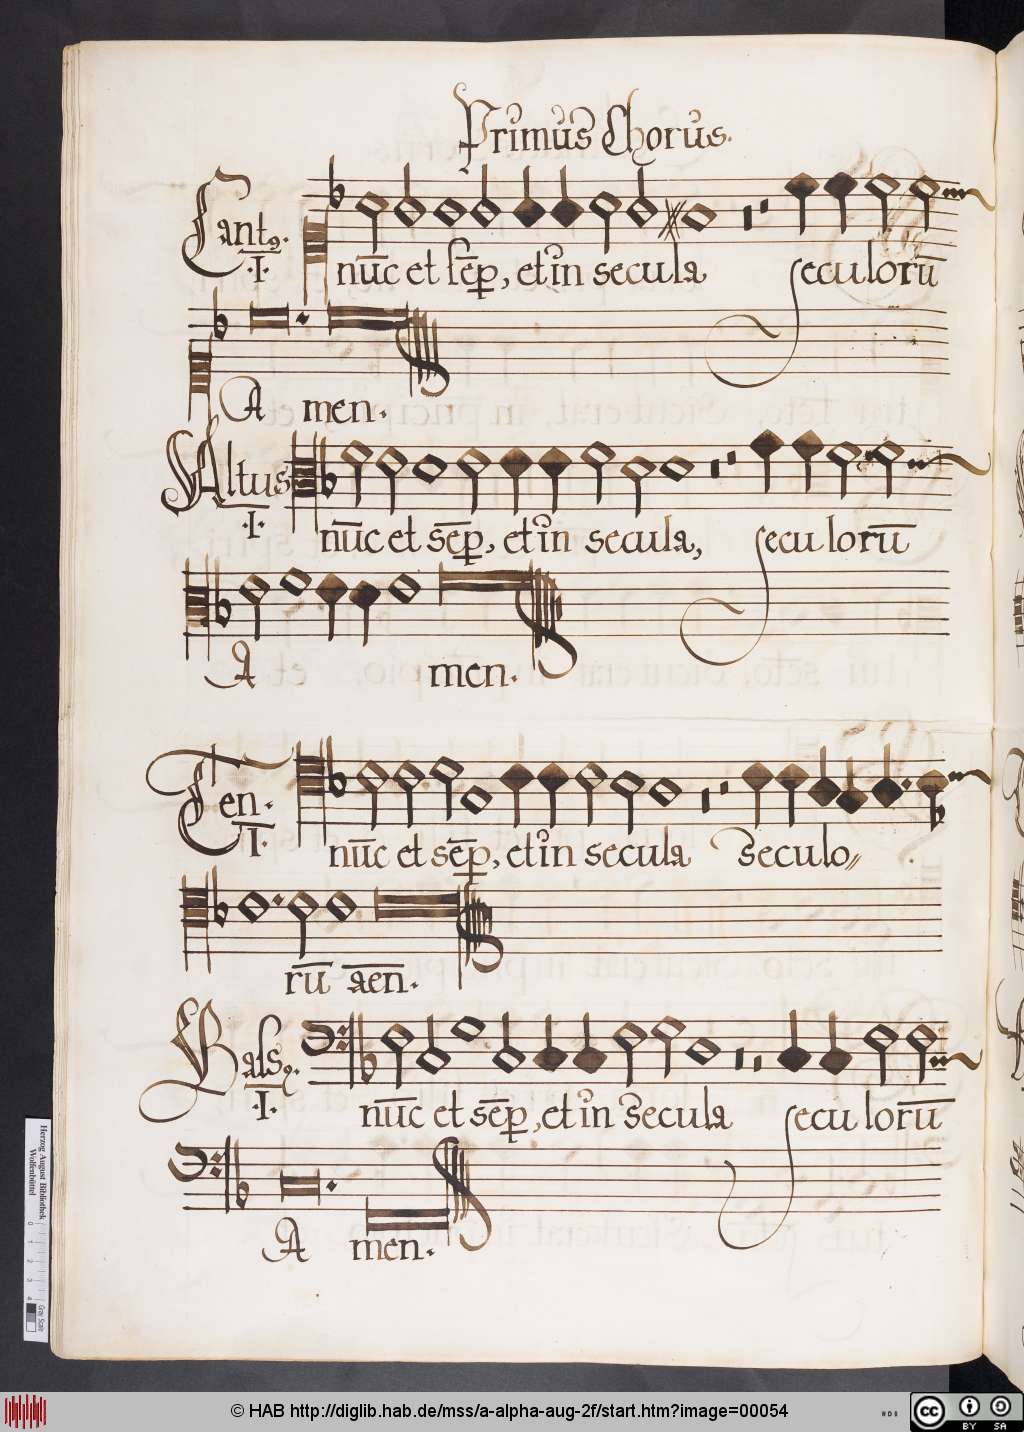 Primus Chorus.
Cantꝯ.
.I.
nūc et sēꝑ, et in secula seculorū
A men.
Altus
.I.
nūc et sēꝑ, et in secula, seculorū
A men.
Ten.
I.
nūc et sēꝑ, et in secula seculo〃
rū aen.
Bassꝯ.
.I.
nūc et sēꝑ, et in secula seculorū
A men.
Herzog August Bibliothek
Wolfenbüttel
0 1 2 3 4
© HAB http://diglib.hab.de/mss/a-alpha-aug-2f/start.htm?image=00054
cc BY SA